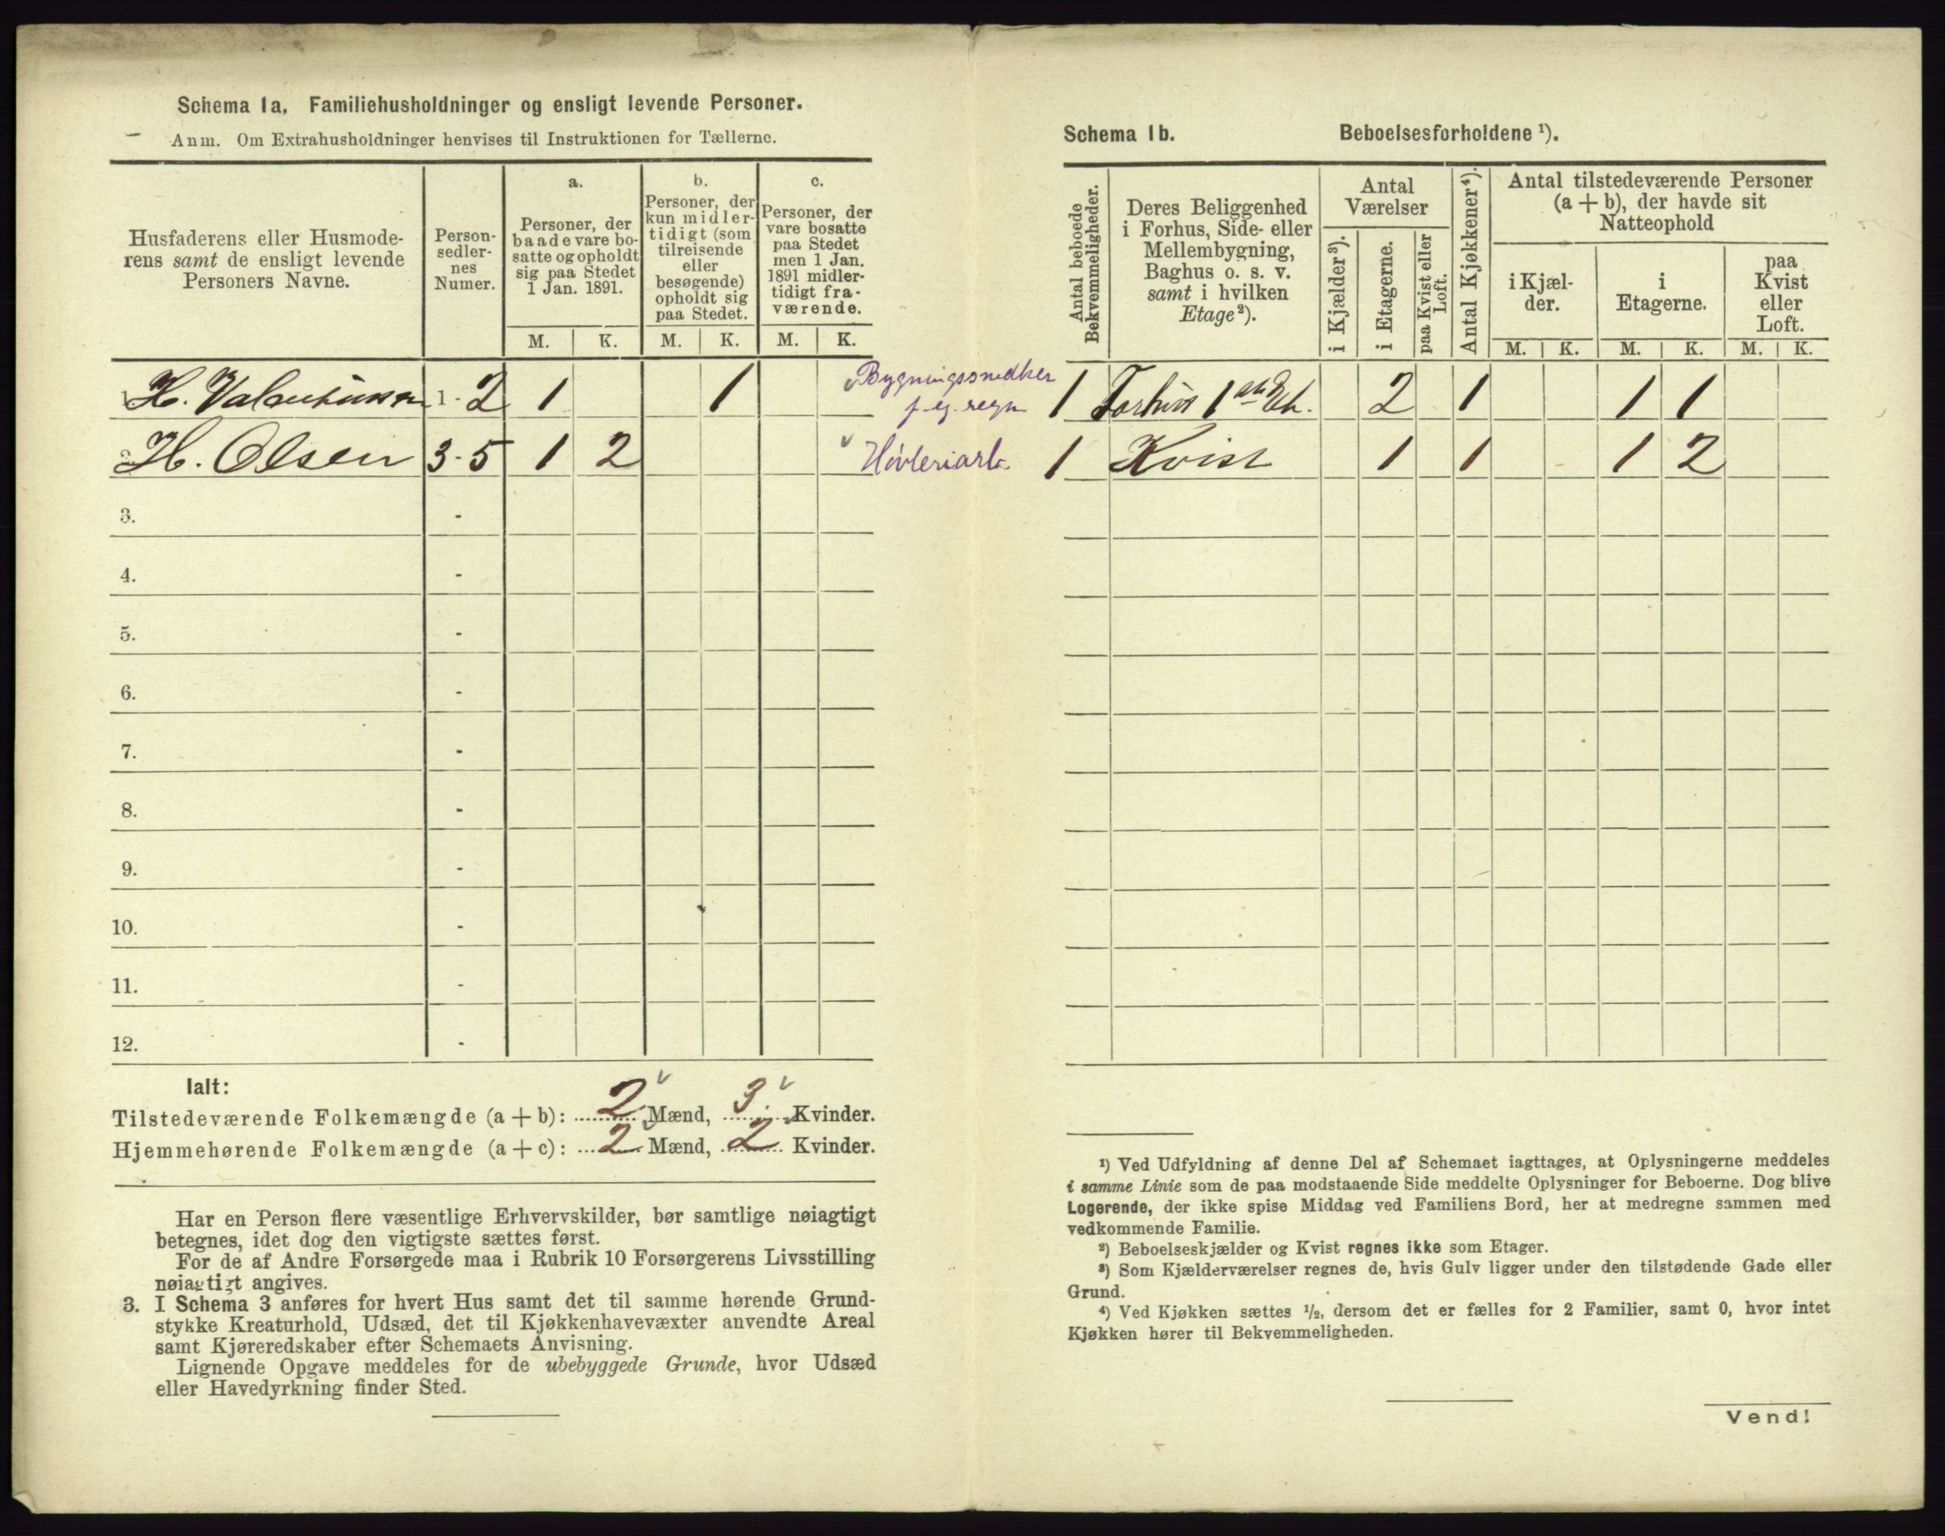 Schema 1a. Familiehusholdninger og ensligt levende Personer.
Anm. Om Extrahusholdninger henvises til Instruktionen for Tællerne.
Husfaderens eller Husmode-
rens samt de ensligt levende
Personers Navne.
Person-
sedler-
nes
Numer.
a.
Personer, der
baade vare bo-
satte og opholdt
sig paa Stedet
1 Jan. 1891.
b.
Personer, der
kun midler-
tidigt (som
tilreisende
eller
besøgende)
opholdt sig
paa Stedet.
c.
Personer, der
vare bosatte
paa Stedet
men 1 Jan.
1891 midler-
tidigt fra-
værende.
M. K. M. K. M. K.
1. H. Valentinsen 1 - 2 1 1 Bygningssnedker
f. eg. regn
2. H. Olsen 3 - 5 1 2 Høvleriarb.
3. -
4. -
5. -
6. -
7. -
8. -
9. -
10. -
11. -
12. -
Ialt:
Tilstedeværende Folkemængde (a + b): 2 Mænd, 3 Kvinder.
Hjemmehørende Folkemængde (a + c): 2 Mænd, 2 Kvinder.
Har en Person flere væsentlige Erhvervskilder, bør samtlige nøiagtigt
betegnes, idet dog den vigtigste sættes først.
For de af Andre Forsørgede maa i Rubrik 10 Forsørgerens Livsstilling
nøiagtigt angives.
3. I Schema 3 anføres for hvert Hus samt det til samme hørende Grund-
stykke Kreaturhold, Udsæd, det til Kjøkkenhavevæxter anvendte Areal
samt Kjøreredskaber efter Schemaets Anvisning.
Lignende Opgave meddeles for de ubebyggede Grunde, hvor Udsæd
eller Havedyrkning finder Sted.
Schema 1b. Beboelsesforholdene ¹).
Antal beboede
Bekvemmeligheder.
Deres Beliggenhed
i Forhus, Side- eller
Mellembygning,
Baghus o. s. v.
samt i hvilken
Etage²).
Antal
Værelser
i Kjælder³).
i Etagerne.
paa Kvist eller
Loft.
Antal Kjøkkener⁴).
Antal tilstedeværende Personer
(a + b), der havde sit
Natteophold
i Kjæl-
der.
i
Etagerne.
paa
Kvist
eller
Loft.
M. K. M. K. M. K.
1 Forhus 1 2 1 1 1
1 Kvist 1 1 1 2
¹) Ved Udfyldning af denne Del af Schemaet iagttages, at Oplysningerne meddeles
i samme Linie som de paa modstaaende Side meddelte Oplysninger for Beboerne. Dog blive
Logerende, der ikke spise Middag ved Familiens Bord, her at medregne sammen med
vedkommende Familie.
²) Beboelseskjælder og Kvist regnes ikke som Etager.
³) Som Kjælderværelser regnes de, hvis Gulv ligger under den tilstødende Gade eller
Grund.
⁴) Ved Kjøkken sættes ½, dersom det er fælles for 2 Familier, samt 0, hvor intet
Kjøkken hører til Bekvemmeligheden.
Vend!